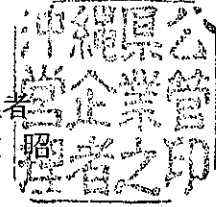 沖縄県公
営企業管
理者之印
者
昭